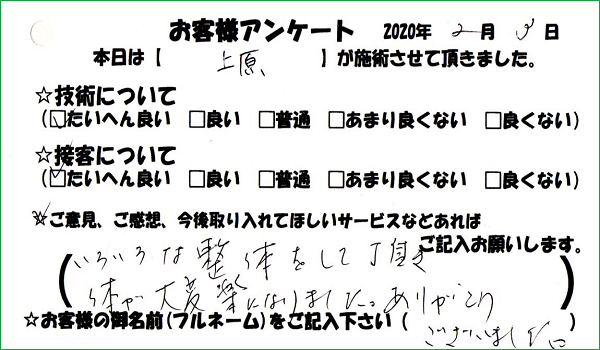 お客様アンケート 2020年 2月 3日
本日は【 上原 】が施術させて頂きました。
☆技術について
(☑たいへん良い □良い □普通 □あまり良くない □良くない)
☆接客について
(☑たいへん良い □良い □普通 □あまり良くない □良くない)
☆ご意見、ご感想、今後取り入れてほしいサービスなどあれば
ご記入お願いします。
(いろいろな整体をして頂き
体が大変楽になりました。ありがとう
ございました。)
☆お客様の御名前(フルネーム)をご記入下さい( )